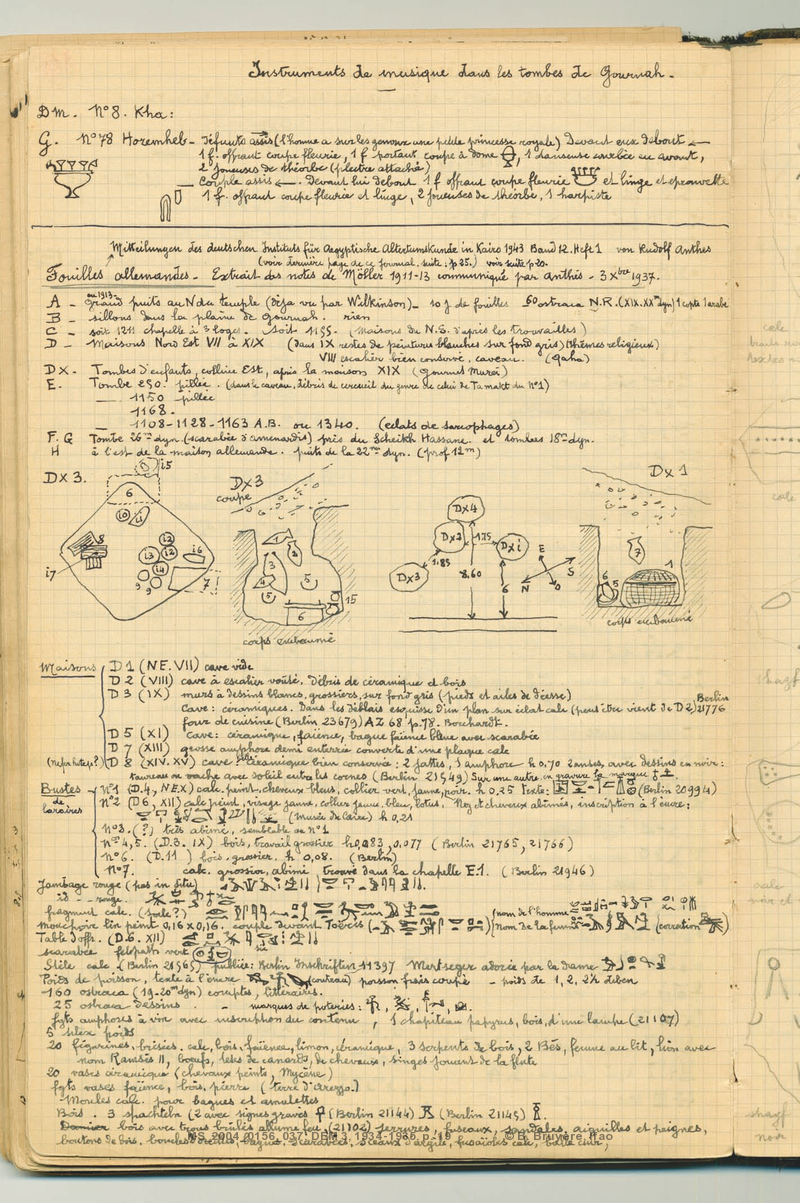 Instruments de musique dans les tombes de Gournah.
DM. N°8. Kha:
G. N°78 Horemheb - défunts assis (l'homme a sur les genoux une petite princesse royale) Devant eux debout ←
1 f. offrant coupe fleurie, 1 f portant coupe à dome, 1 danseuse courbée en avant,
2 joueuses de théorbe (plectre attaché)
— Couple assis ←. Devant lui debout 1 f offrant coupe fleurie et linge et éprouvette
1 f. offrant coupe fleurie et linge, 2 joueuses de théorbe, 1 harpiste
Mitteilungen des deutschen Instituts für Aegyptische Altertumskunde in Kairo 1943 Band 12. Heft 1 von Rudolf Anthes
(voir dernière page de ce journal. suite: p 25.) voir suite p 20.
Fouilles allemandes - Extrait des notes de Möller 1911-13 communiqué par Anthès - 3 Xbre 1937.
ou 1913
A - Grand puits au N du temple (déja vu par Wilkinson) - 10 j de fouilles 60 ostraca N.R. (XIX.XXme dyn) 1 copte 1 arabe
B - sillons dans la plaine de Gournah. rien
C - soit 1211 chapelle à 3 loges. soit 1155. (Maisons du N.E. d'après les trouvailles)
D - Maisons Nord Est VII à XIX (dans IX restes de peintures blanches sur fond gris) (thèmes religieux)
VIII escalier bien conservé, caveau. (Qaha)
DX - Tombes d'enfants, colline Est, après la maison XIX (Gournet Mureï)
E. Tombe 290. pillée. (dans le caveau, débris de cercueil du genre de celui de Tamakt du N°1)
— 1150 pillée
1168.
— 1108-1128-1163 A.B. ou 1340. (eclats de sarcophages)
F. G Tombe 26me dyn. (scarabée d'amenardis) près du Scheikh Hassane. et tombes 18me dyn.
H à l'est de la maison allemande. puits de la 22me dyn. (prof 12m)
DX 3.
i5
6
10
11
8
13
12
14
9
16
7
i7
DX3
coupe
1
2
3
4
5
5
6
15
corps embaumé
DX4
DX2
1.75
DX1
1.85
DX3
8.60
6
N
E
S
O
DX1
7
6
5
1
corps embaumé
Maisons
D 1 (NE.VII) cave vide
D 2 (VIII) cave à escalier voûté. Débris de céramique et bois
D 3 (IX) murs à dessins blancs, grossiers, sur fond gris (pieds et ailes de déesse)
Cave: céramiques. Dans les déblais esquisse d'un plan sur éclat calc (peut être vient de D2) Berlin 21776
four de cuisine (Berlin 23679) AZ 68 p.78. Borchardt.
D 5 (XI) Cave: céramique, faïence, bague faïence bleue avec scarabée
D 7 (XIII) grosse amphore demi enterrée couverte d'une plaque calc
(Neferhotep?) D 8 (XIV.XV) cave: céramique bien conservée: 2 jattes, 1 amphore - h 0.70 2 anses, avec dessins en noir:
taureau ou vache avec soleil entre les cornes (Berlin 21549) Sur une autre, en gravure la marque
Bustes de laraires
N°1 (D.4, NE.X) calc. peint, cheveux bleus, collier vert, jaune, noir. h 0.25 Texte: (Berlin 20994)
N°2 (D6, XII) calc peint, visage jaune, collier jaune, bleu, lotus. Nez et cheveux abîmés, inscription à l'encre:
(Musée du Caire) h 0,21
N°3. (?) très abîmé, semblable au n°1
Nos 4, 5. (D.3. IX) bois, travail grossier h 0,083, 0,077 (Berlin 21765, 21766)
N°6. (D.11) bois, grossier. h 0.08. (Berlin)
N°7. calc. grossier, abîmé, trouvé dans la chapelle E.1. (Berlin 21946)
Jambage rouge (pas in situ)
id - rouge.
fragment calc. (stèle?)
mouchoir lin peint 0,16 x 0,16. couple devant Toëris (nom de l'homme) (nom de la femme)
Table d'off. (D.6. XII)
scarabée feldspath vert
Stèle calc. (Berlin 21565) publiée: Berlin Inschriften 11397 Mertseger adorée par la dame
Poids de poisson, texte à l'encre (couteau) poisson frais coupé - poids de 1, 2, 2½ deben
160 ostraca (19-20me dyn) comptes, littéraires.
25 ostraca dessins. - marques de poteries:
fgts amphores à vin avec inscription du contenu, 1 chapiteau papyrus, bois, d'une lampe (21107)
5 silex poids
20 figurines, brisées, calc, bois, faïence, limon, céramique, 3 serpents de bois, 2 Bès, femme au lit, lion avec
nom Ramsès II, bœufs, têtes de canards, de chevaux, singes jouant de la flute
20 vases céramique (chevaux peints, Mycène)
fgts vases faïence, bois, pierre (terre d'Arezzo.)
Moules calc. pour bagues et amulettes
Bois. 3 spachteln (2 avec signes gravés (Berlin 21144) (Berlin 21145)
bois avec trous brûlés allume feu, (21102) serrures, fuseaux, sandales, aiguilles et peignes,
boutons de bois, boucles d'oreilles, bagues, scarabées, sceaux d'argile, fusaïoles calc, balle cuir,
MS_2004_0156_037: DEM 3, 1934-1935, p. 19 © B. Bruyère, Ifao